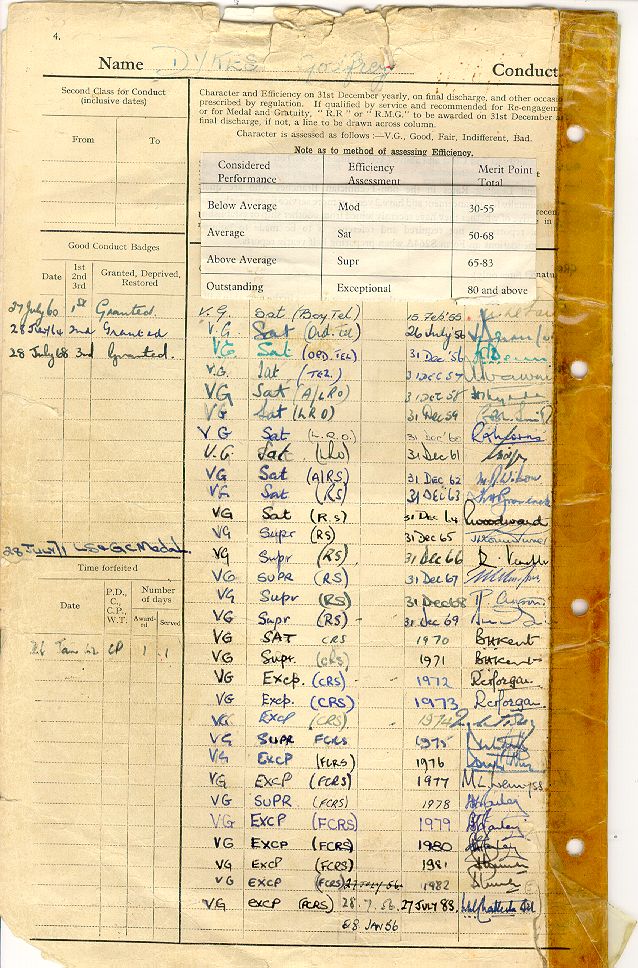 4.
Name DYKES Godfrey Conduct.
Second Class for Conduct
(inclusive dates)
From To
Character and Efficiency on 31st December yearly, on final discharge, and other occasio
prescribed by regulation. If qualified by service and recommended for Re-engagem
or for Medal and Gratuity, "R.R" or "R.M.G." to be awarded on 31st December a
final discharge, if not, a line to be drawn across column.
Character is assessed as follows :—V.G., Good, Fair, Indifferent, Bad.
Note as to method of assessing Efficiency.
Considered Performance Efficiency Assessment Merit Point Total
Below Average Mod 30-55
Average Sat 50-68
Above Average Supr 65-83
Outstanding Exceptional 80 and above
Good Conduct Badges
Date 1st 2nd 3rd Granted, Deprived, Restored
27 July 60 1st Granted.
28 July 64 2nd Granted
28 July 68 3rd Granted.
28 July 71 LS & GC Medal.
Time forfeited
Date P.D., C., C.P., W.T. Number of days
Award-ed Served
Jan 62 CP 1 1
V.G. Sat (Boy Tel) 15 Feb '55
V.G. Sat (Ord. Tel) 26 July '56
VG Sat (ORD. TEL) 31 Dec '56
V.G. Sat (TEL.) 31 DEC 57
VG Sat (A/LRO) 31 Dec 58
VG Sat (LRO) 31 Dec 59
V G Sat (L.R.O.) 31 Dec '60
V.G. Sat (LRO) 31 Dec 61
VG Sat (A/RS) 31 DEC 62
VG Sat (RS) 31 DEC 63
VG Sat (R.S) 31 Dec 64 Woodward
VG Supr (RS) 31 Dec 65
VG Supr (RS) 31 Dec 66
VG SUPR (RS) 31 Dec 67
VG Supr (RS) 31 Dec 68
VG Supr (RS) 31 Dec 69
VG SAT CRS 1970 BHKent
VG Supr. (CRS) 1971 BHKent
VG Excp. (CRS) 1972 RcMorgan
VG Excp. (CRS) 1973 RcMorgan
VG EXCP (CRS) 1974
VG SUPR FCRS 1975
VG EXCP (FCRS) 1976
VG EXCP (FCRS) 1977
VG SUPR (FCRS) 1978
VG EXCP (FCRS) 1979
VG EXCP (FCRS) 1980
VG EXCP (FCRS) 1981
VG EXCP (FCRS) 27 JULY 56 1982
VG EXCP (FCRS) 28.7.56. 27 JULY 83
08 JAN 56